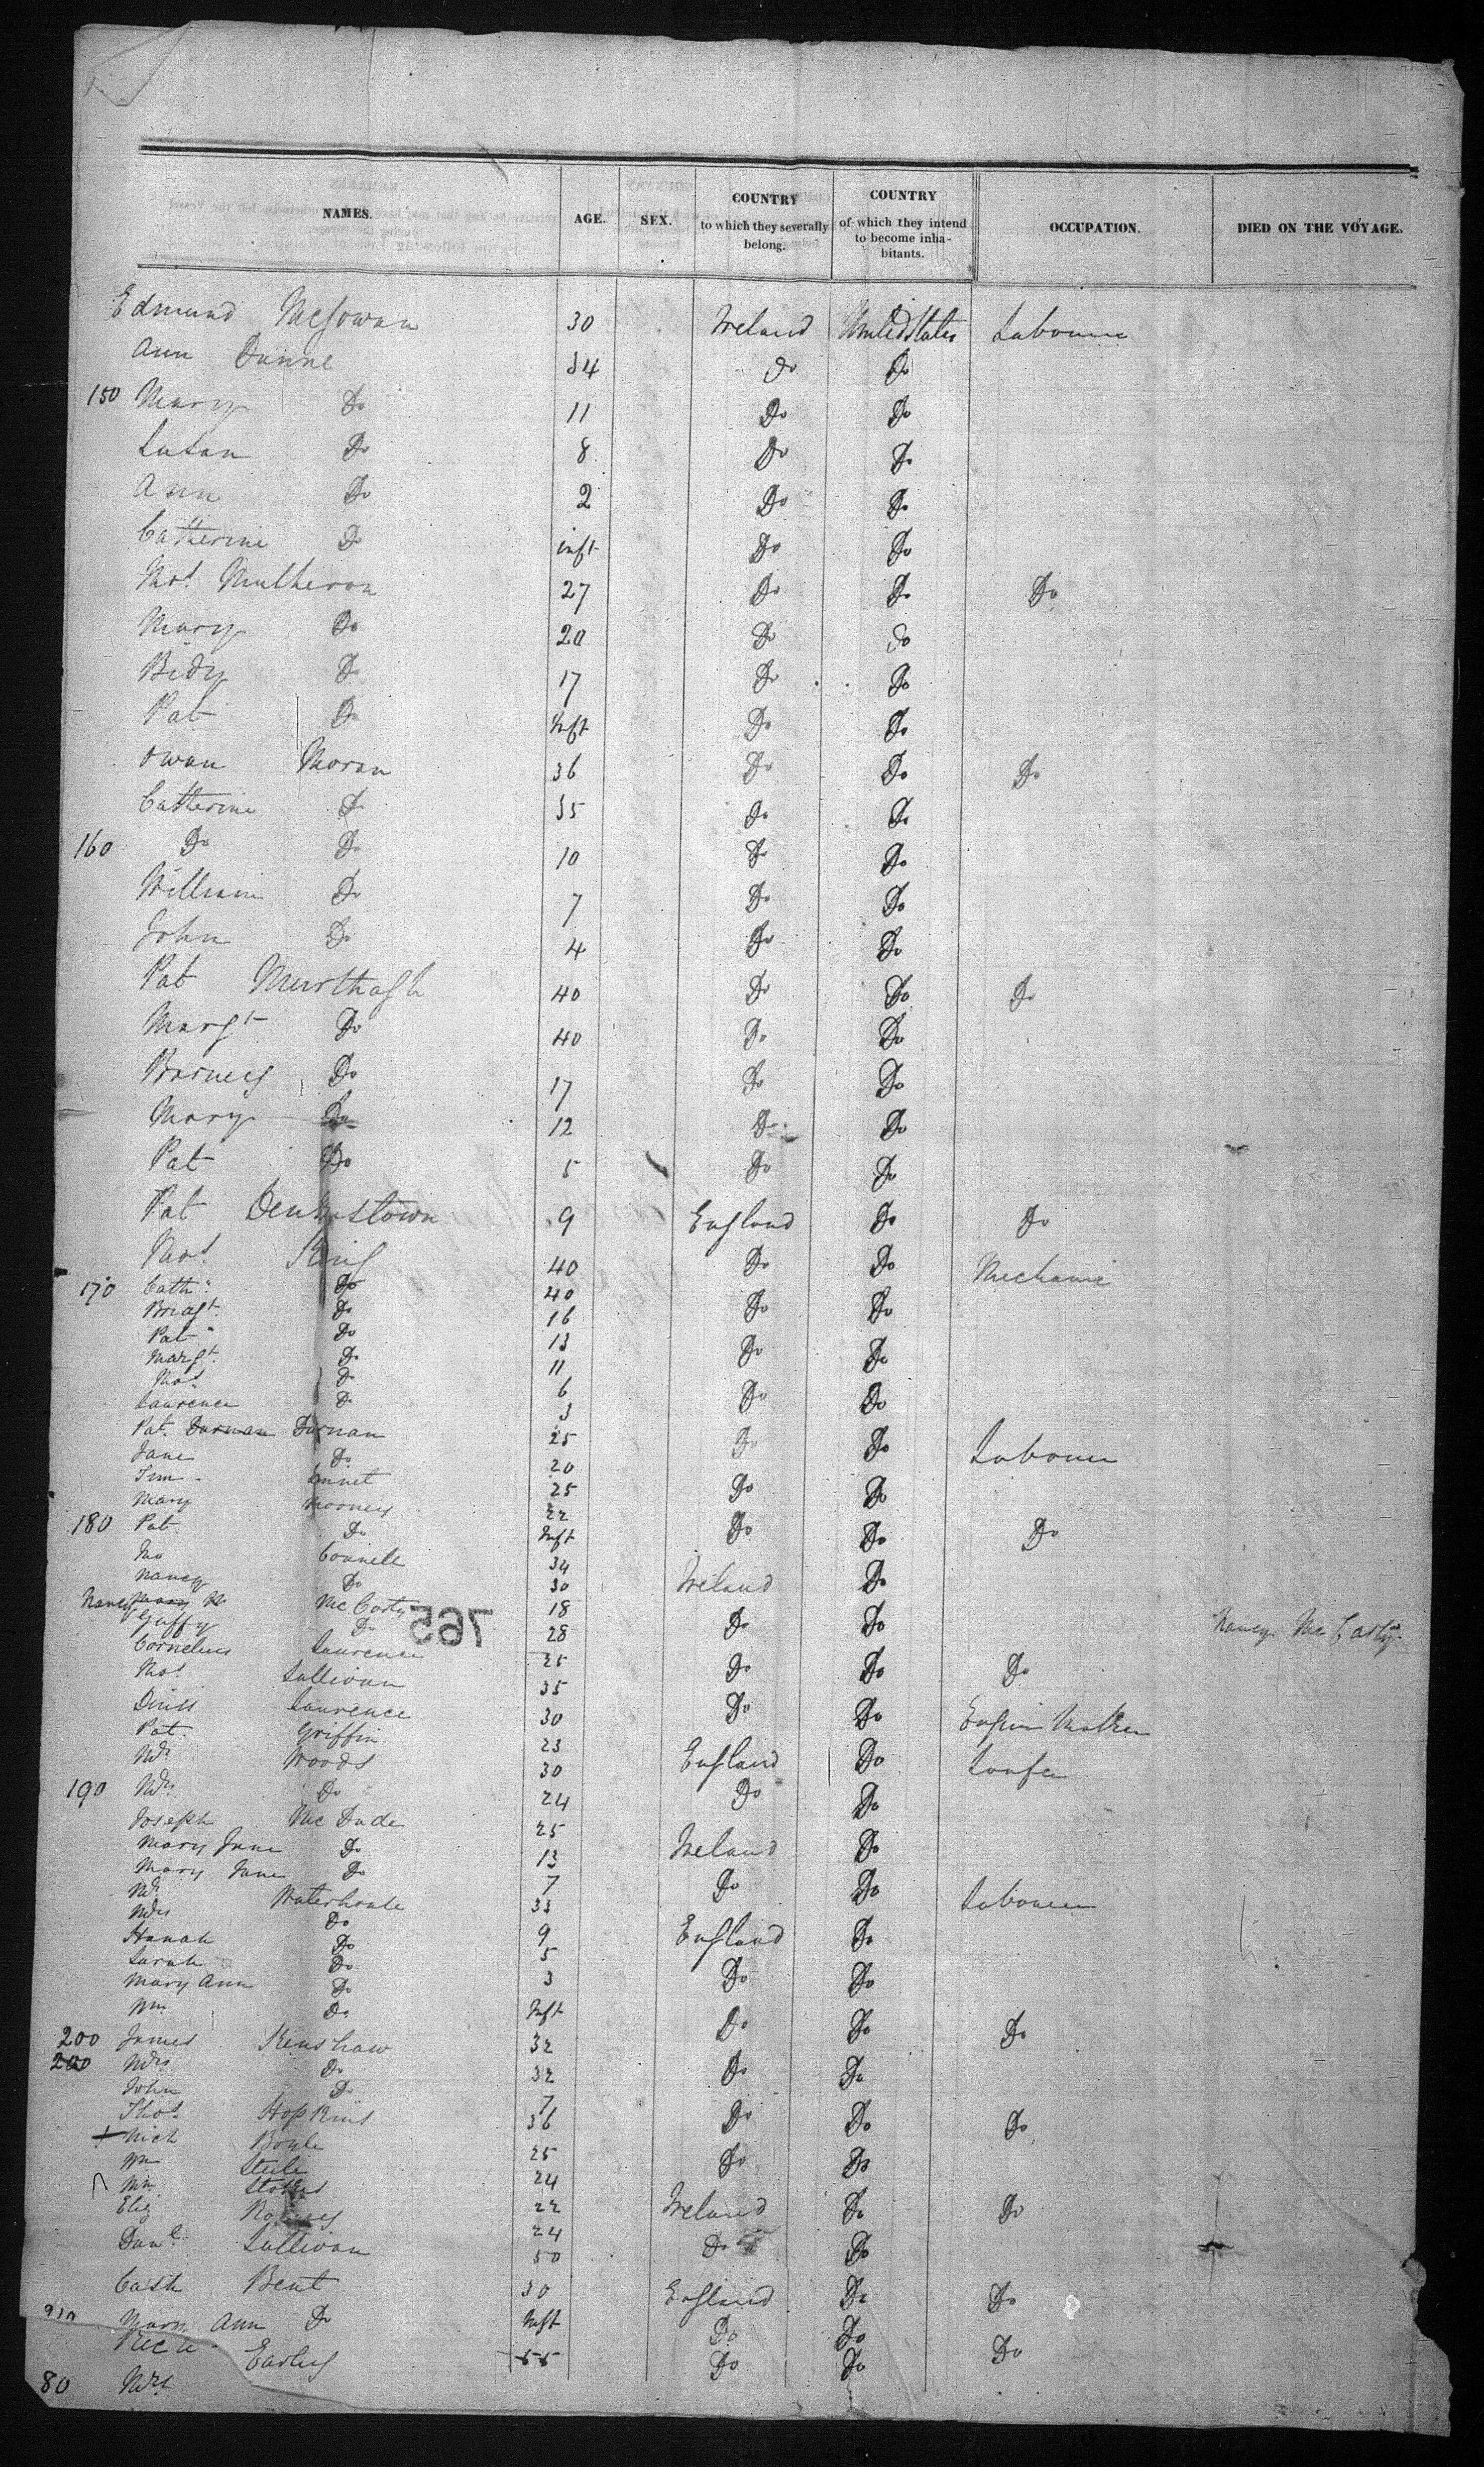 NAMES. AGE. SEX. COUNTRY to which they severally belong. COUNTRY of which they intend to become inhabitants. OCCUPATION. DIED ON THE VOYAGE.
Edmund McGowan 30 Ireland United States Labourer
Ann Dunne 34 Do Do
150 Mary Do 11 Do Do
Susan Do 8 Do Do
Ann Do 2 Do Do
Catherine Do inft Do Do
Thos Mulheron 27 Do Do Do
Mary Do 20 Do Do
Bidy Do 17 Do Do
Pat Do Inft Do Do
Owan Moran 36 Do Do Do
Catherine Do 35 Do Do
160 Do Do 10 Do Do
William Do 7 Do Do
John Do 4 Do Do
Pat Murthagh 40 Do Do Do
Margt Do 40 Do Do
Barney Do 17 Do Do
Mary Do 12 Do Do
Pat Do 5 Do Do
Pat 9 England Do Do
Thos King 40 Do Do Mechanic
170 Cath Do 40 Do Do
Do 16
Pat Do 13 Do Do
Margt Do 11
Thos Do 6 Do Do
Laurence Do 3
Pat. Durnan Durnan 25 Do Do Labourer
Jane Do 20
Tim 25 Do Do
Mary Mooney 22
180 Pat Do Inft Do Do Do
Jno Connele 34
Nancy Do 30 Ireland Do
Nancy Mary McCarty 18
Guffy Do 28 Do Do Nancy McCarty
Cornelius Laurence 25
Thos Sullivan 35 Do Do Do
Laurence 30 Do Do Engin Maker
Pat. Griffin 23
Mr Woods 30 England Do
190 Mrs Do 24 Do Do
Joseph McDade 25
Mary Jane Do 13 Ireland Do
Mary Jane Do 7 Do Do Labourer
Mr Waterhouse 33
Mrs Do 9 England Do
Hanah Do 5
Sarah Do 3 Do Do
Mary Ann Do
Wm Do Inft Do Do Do
200 James Renshaw 32
200 Mrs Do 32 Do Do
John Do 7
Thos Hopkins 36 Do Do Do
Mich Boyle 25 Do Do
Wm Steele 24
Wm Stokes 22 Ireland Do Do
Eliz 24
Danl Sullivan 50 Do Do
Cath Bent 30 England Do Do
210 Mary Ann Do Inft Do Do
Earley 55 Do Do Do
80 Mrs
765